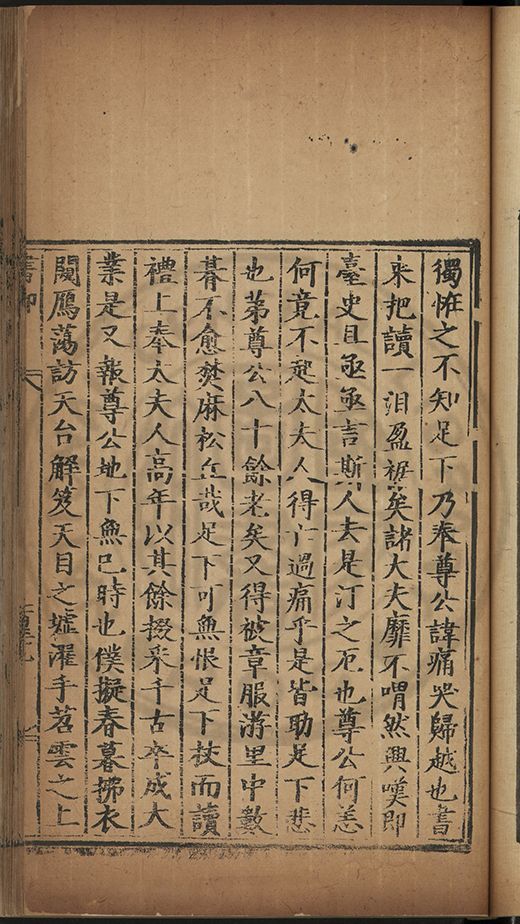 獨恠之不知足下乃奉尊公諱痛哭歸越也書
来把讀一泪盈裾矣諸大夫靡不喟然興嘆即
臺史且亟亟言斯人去是汀之厄也尊公何恙
何竟不起太夫人得亡過痛乎是皆助足下悲
也苐尊公八十餘老矣又得被章服游里中數
朞不愈焚麻松丘哉足下可無恨足下杖而讀
禮上奉太夫人高年以其餘掇采千古卒成大
業是又報尊公地下無已時也僕擬春暮拂衣
闚鴈蕩訪天台解笈天目之墟濯手苕雲之上